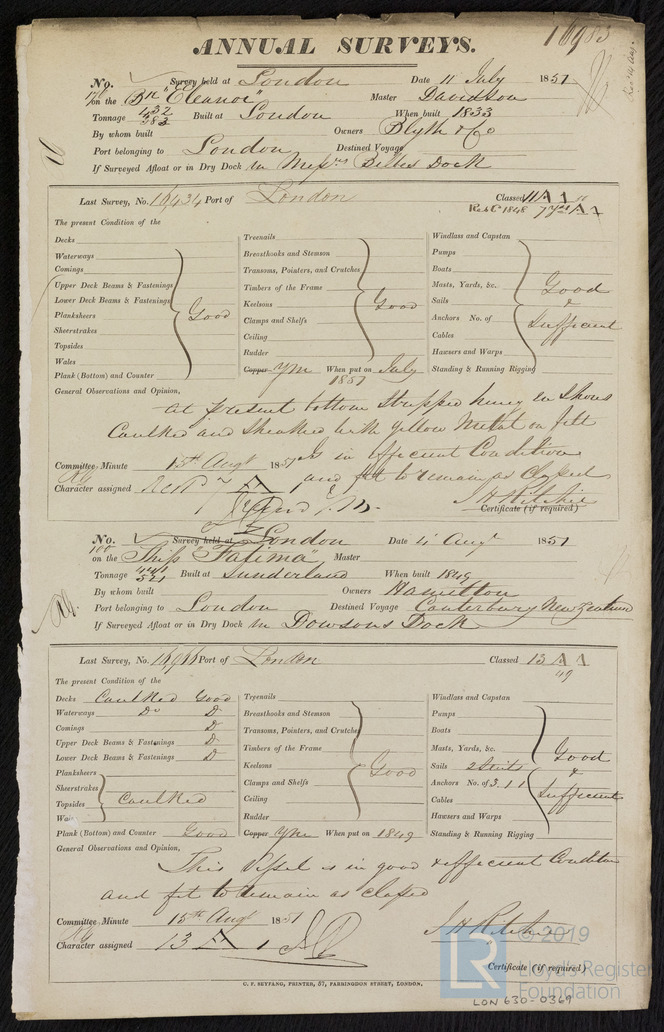 ANNUAL SURVEYS.
16983
No. Survey held at London Date 11 July 1851
on the Bk "Eleanor" Master Davidson
Tonnage 432 383 Built at London When built 1833
By whom built Owners Blyth & Co
Port belonging to London Destined Voyage
If Surveyed Afloat or in Dry Dock in Messrs Dock
Last Survey, No. 16,434 Port of London Classed 11 A A
1848 7 A A
The present Condition of the
Decks Treenails Windlass and Capstan
Waterways Breasthooks and Stemson Pumps
Comings Transoms, Pointers, and Crutches Boats
Upper Deck Beams & Fastenings Timbers of the Frame Masts, Yards, &c. Good
Lower Deck Beams & Fastenings Keelsons Sails &
Planksheers Good Clamps and Shelfs Good Anchors No. of Sufficient
Sheerstrakes Ceiling Cables
Topsides Rudder Hawsers and Warps
Wales Copper YM When put on July 1851 Standing & Running Rigging
Plank (Bottom) and Counter
General Observations and Opinion,
at present bottom stripped hung in Shores
Caulked and Sheathed with yellow Metal on felt
Is in Efficient Condition
Committee Minute 15th Augt 1851 and fit to remain as Classed
Character assigned A 1
J H Ritchie
Certificate (if required)
No. Survey held at London Date 4 Augt 1851
on the Ship "Fatima" Master
Tonnage 521 Built at Sunderland When built 1849
By whom built Owners Hamilton
Port belonging to London Destined Voyage Canterbury New Zealand
If Surveyed Afloat or in Dry Dock in Dowsons Dock
Last Survey, No. Port of London Classed 13 A A
49
The present Condition of the
Decks Caulked Good Treenails Windlass and Capstan
Waterways Do D Breasthooks and Stemson Pumps
Comings D Transoms, Pointers, and Crutches Boats
Upper Deck Beams & Fastenings D Timbers of the Frame Masts, Yards, &c. Good
Lower Deck Beams & Fastenings D Keelsons Good Sails 2 Suits &
Planksheers Clamps and Shelfs Anchors No. of 3.1.1 Sufficient
Sheerstrakes Ceiling Cables
Topsides Caulked Rudder Hawsers and Warps
Wales Copper YM When put on 1849 Standing & Running Rigging
Plank (Bottom) and Counter Good
General Observations and Opinion,
This Vessel is in good & efficient Condition
and fit to remain as classed
Committee Minute 15th Augt 1851 J H Ritchie
Character assigned 13 A 1
Certificate (if required)
C. F. SEYFANG, PRINTER, 57, FARRINGDON STREET, LONDON.
LR © 2019
Lloyd's Register
Foundation
LON 630-0369